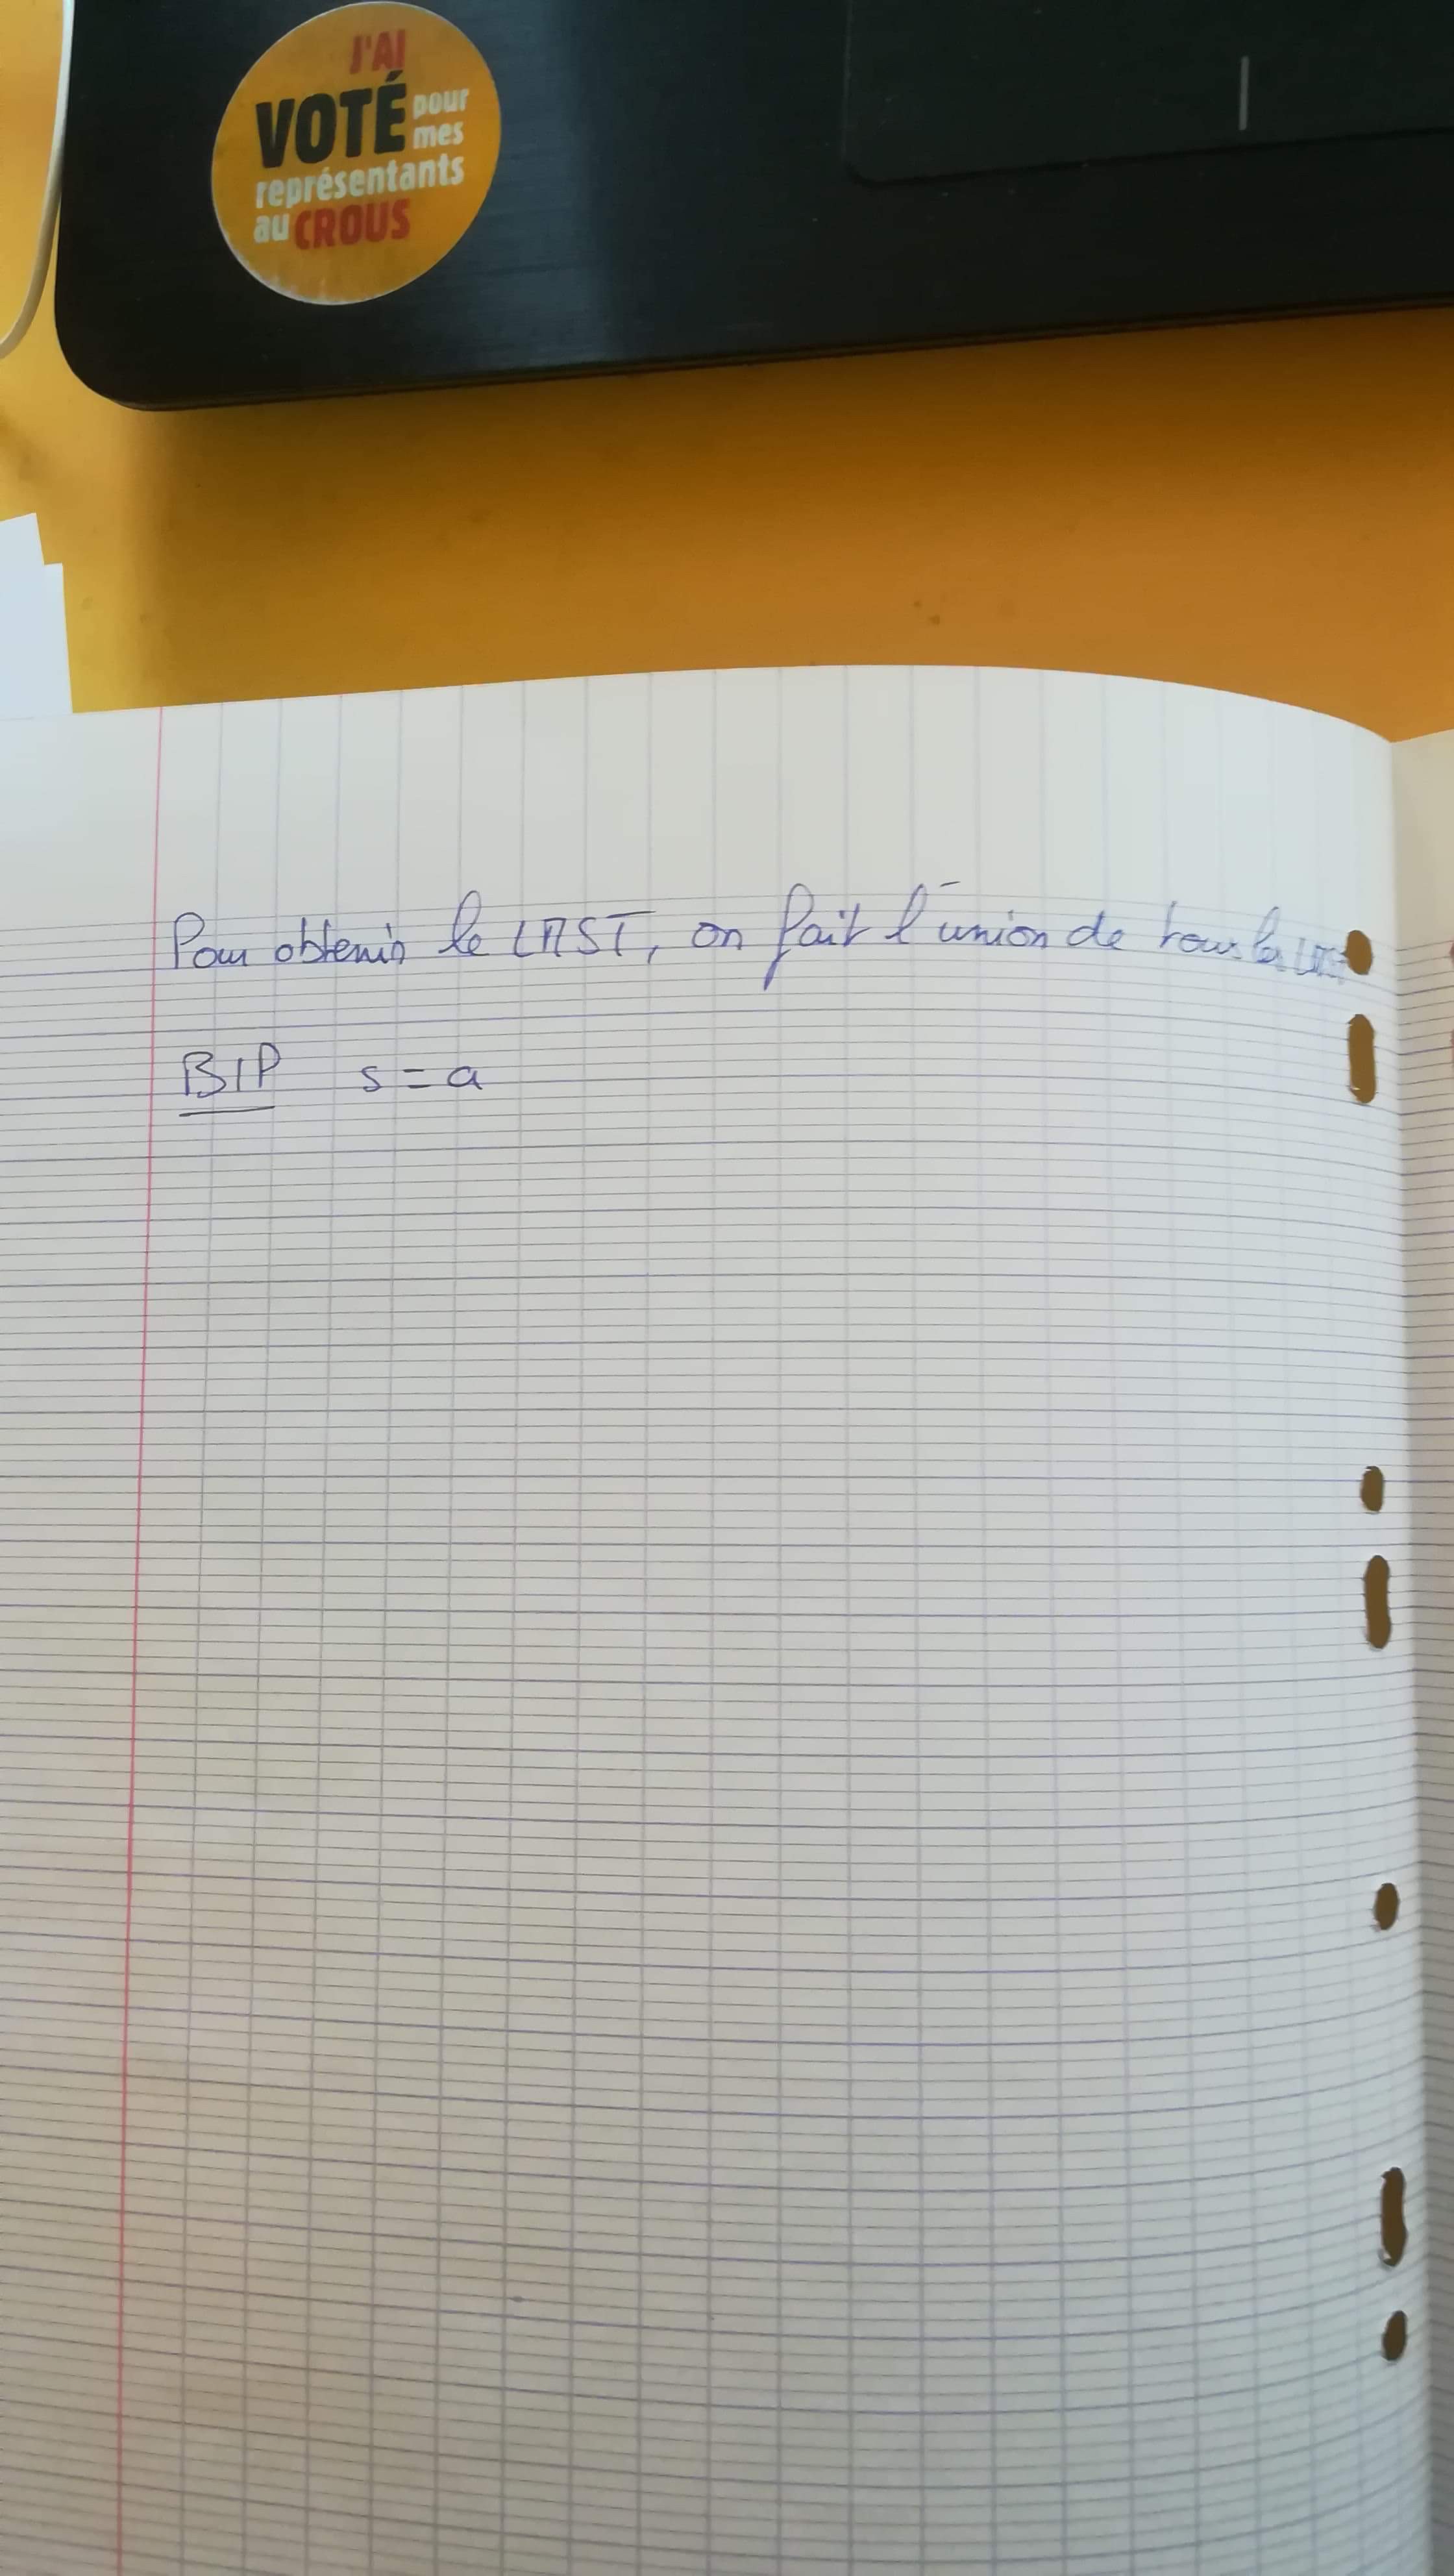 J'AI
VOTÉ pour
mes
représentants
au CROUS
Pour obtenir le LMST, on fait l'union de tous les
BIP s = a